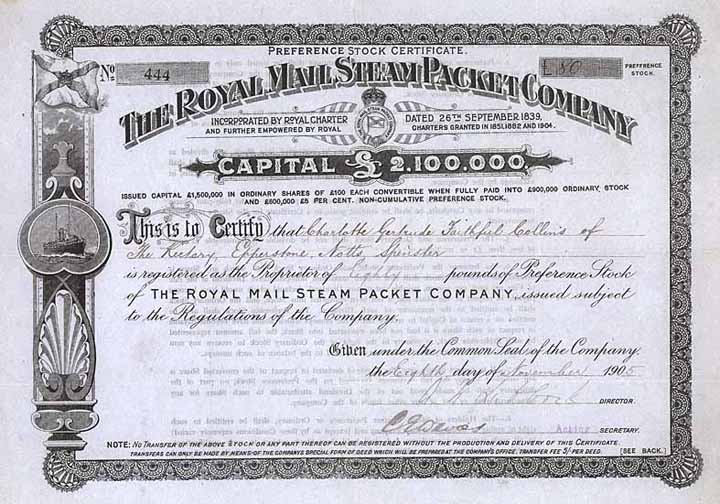 PREFERENCE STOCK CERTIFICATE.
No 444 £80 PREFERENCE STOCK.
THE ROYAL MAIL STEAM PACKET COMPANY
INCORPORATED BY ROYAL CHARTER DATED 26TH SEPTEMBER 1839,
AND FURTHER EMPOWERED BY ROYAL CHARTERS GRANTED IN 1851, 1882 AND 1904.
CAPITAL £2,100,000
ISSUED CAPITAL £1,500,000 IN ORDINARY SHARES OF £100 EACH CONVERTIBLE WHEN FULLY PAID INTO £900,000 ORDINARY STOCK
AND £600,000 £5 PER CENT. NON-CUMULATIVE PREFERENCE STOCK.
This is to Certify that Charlotte Gertrude Faithful Collins of
The Rectary, Epperstone, Notts, Spinster
is registered as the Proprietor of Eighty pounds of Preference Stock
of THE ROYAL MAIL STEAM PACKET COMPANY, issued subject
to the Regulations of the Company.
Given under the Common Seal of the Company.
the Eighth day of November 1905
DIRECTOR.
Acting SECRETARY.
NOTE: NO TRANSFER OF THE ABOVE STOCK OR ANY PART THEREOF CAN BE REGISTERED WITHOUT THE PRODUCTION AND DELIVERY OF THIS CERTIFICATE.
TRANSFERS CAN ONLY BE MADE BY MEANS OF THE COMPANY'S SPECIAL FORM OF DEED WHICH WILL BE PREPARED AT THE COMPANY'S OFFICE. TRANSFER FEE 5/- PER DEED. [SEE BACK.]